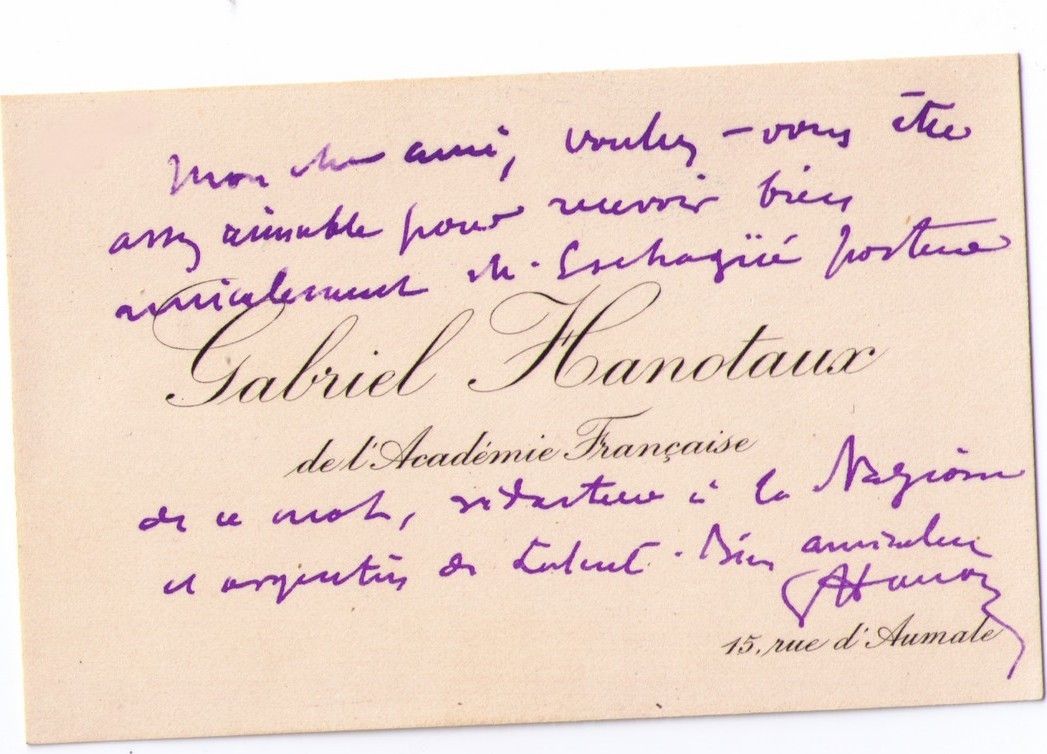 Mon cher ami, voulez-vous être
assez aimable pour recevoir bien
amicalement M. Echagüé porteur
Gabriel Hanotaux
de l'Académie Française
de ce mot, rédacteur à la Nazione
et argentin de talent. Bien amicalement
GHanotaux
15, rue d'Aumale